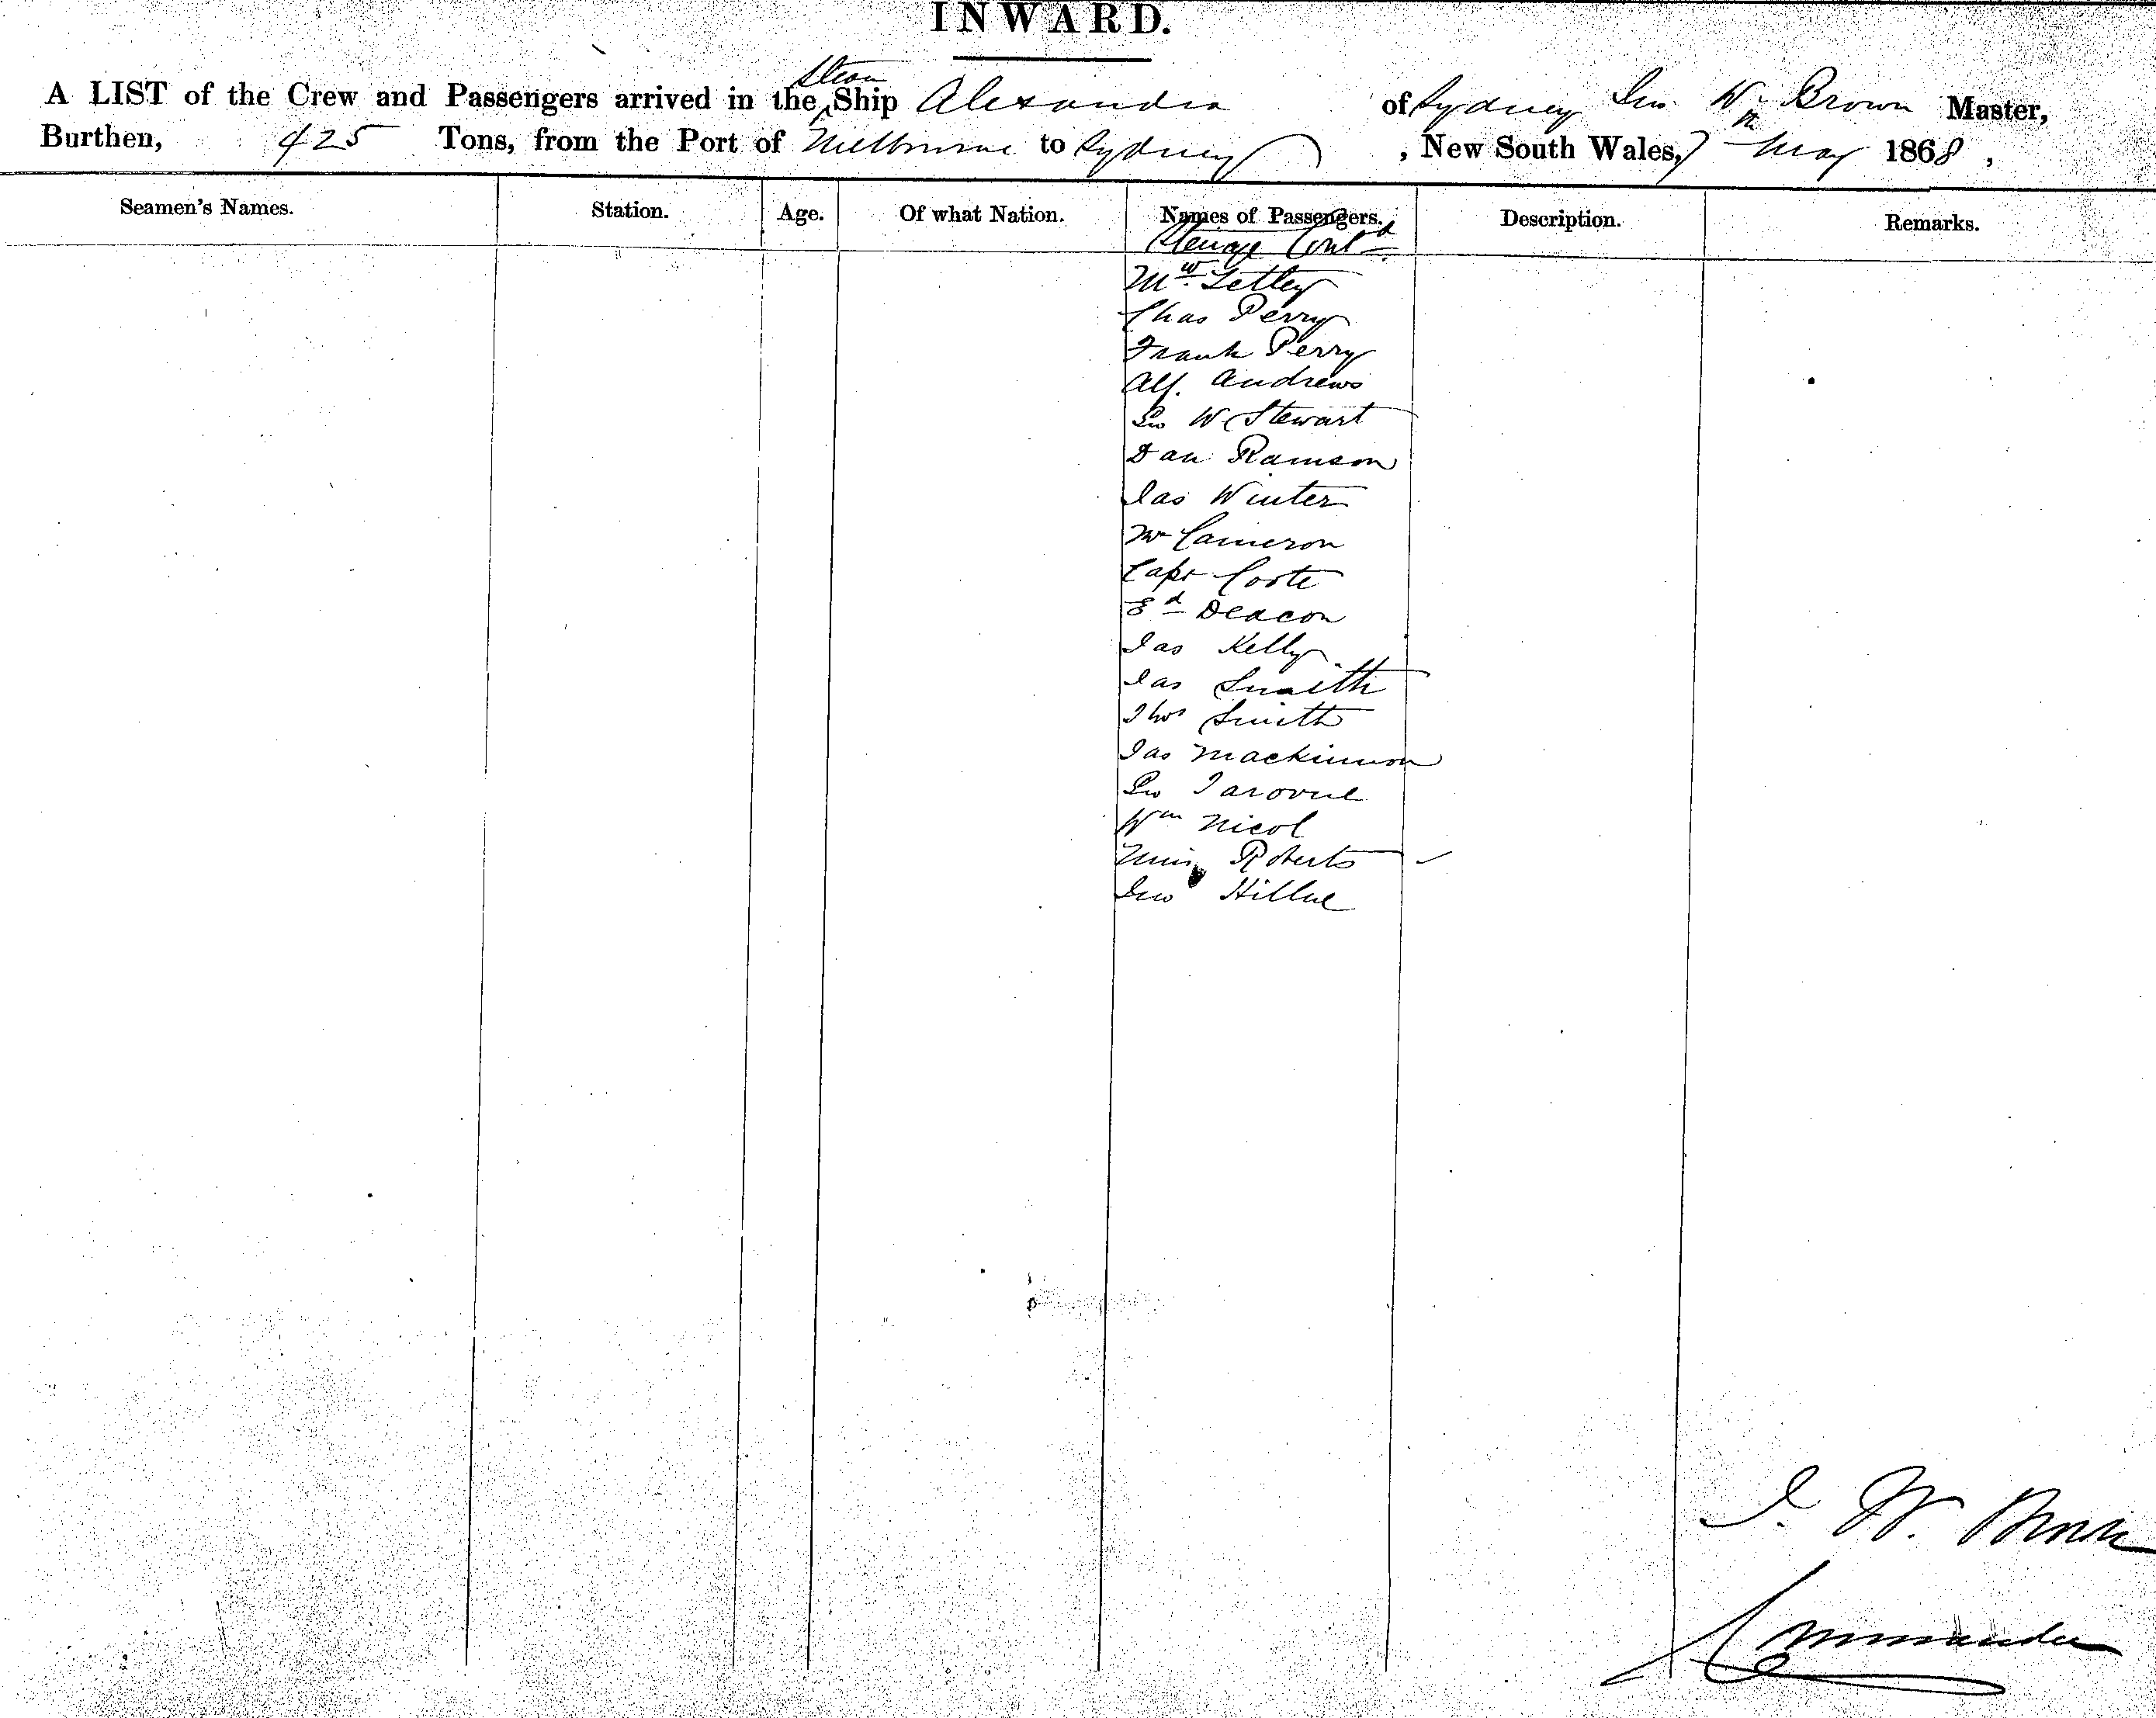 INWARD.
A LIST of the Crew and Passengers arrived in the Steam Ship Alexandra of Sydney Jno. Wm Brown Master,
Burthen, 425 Tons, from the Port of Melbourne to Sydney, New South Wales, 7th May 1868,
Seamen's Names. Station. Age. Of what Nation. Names of Passengers. Description. Remarks.
Steerage Contd
Tetley
Chas Perry
Frank Perry
Alf. Andrews
W Stewart
Dan Ramson
Jas Winter
Mr Cameron
Capt Coote
Ed Deacon
Jas Kelly
Jas Smith
Thos Smith
Jas Mackinnon
Wm Nicol
Roberts
J. W. Brown
Commander